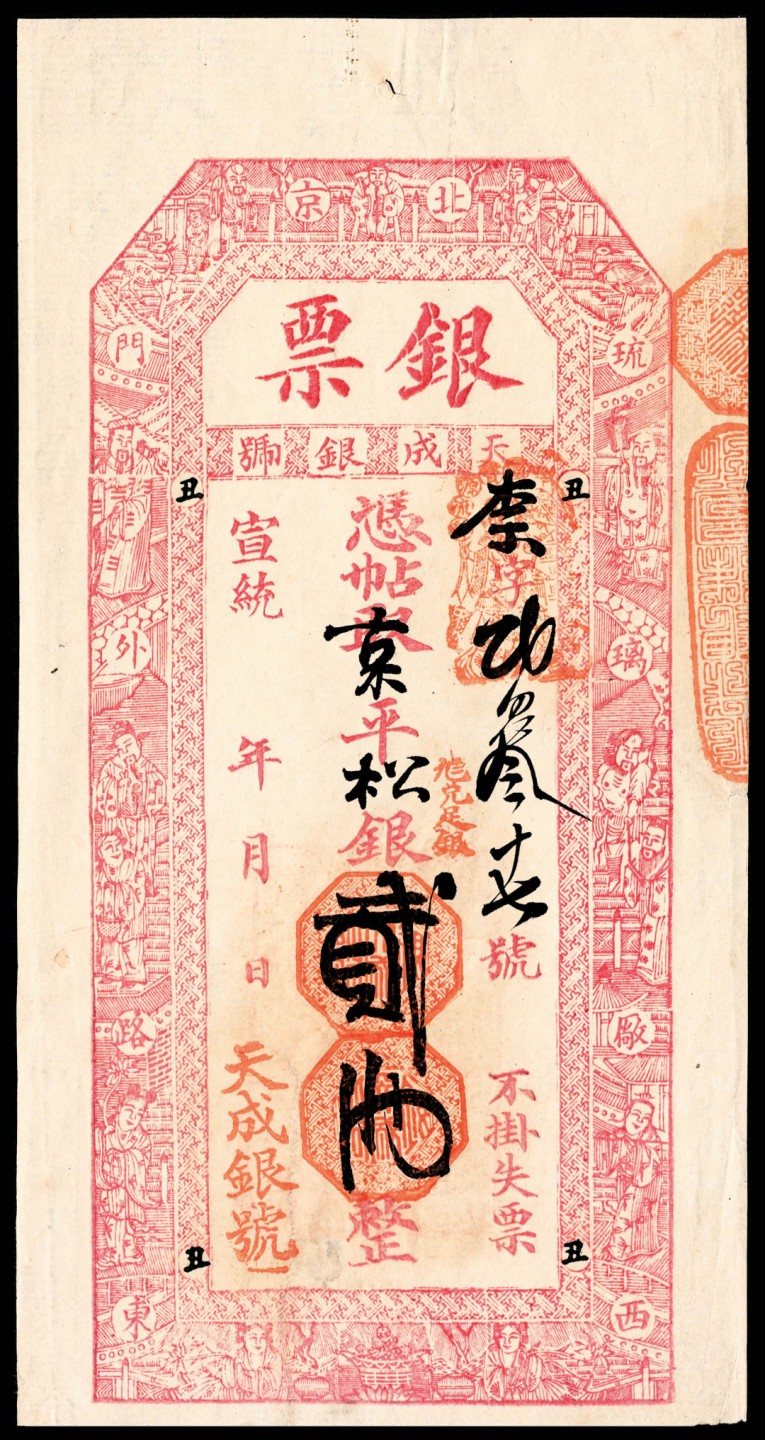 北京
琉璃厰西
門外路東
銀票
天成銀號
柰字
號
不掛失票
憑帖取京平松銀貳兩整
宣統年月日
天成銀號
丑
丑
丑
丑